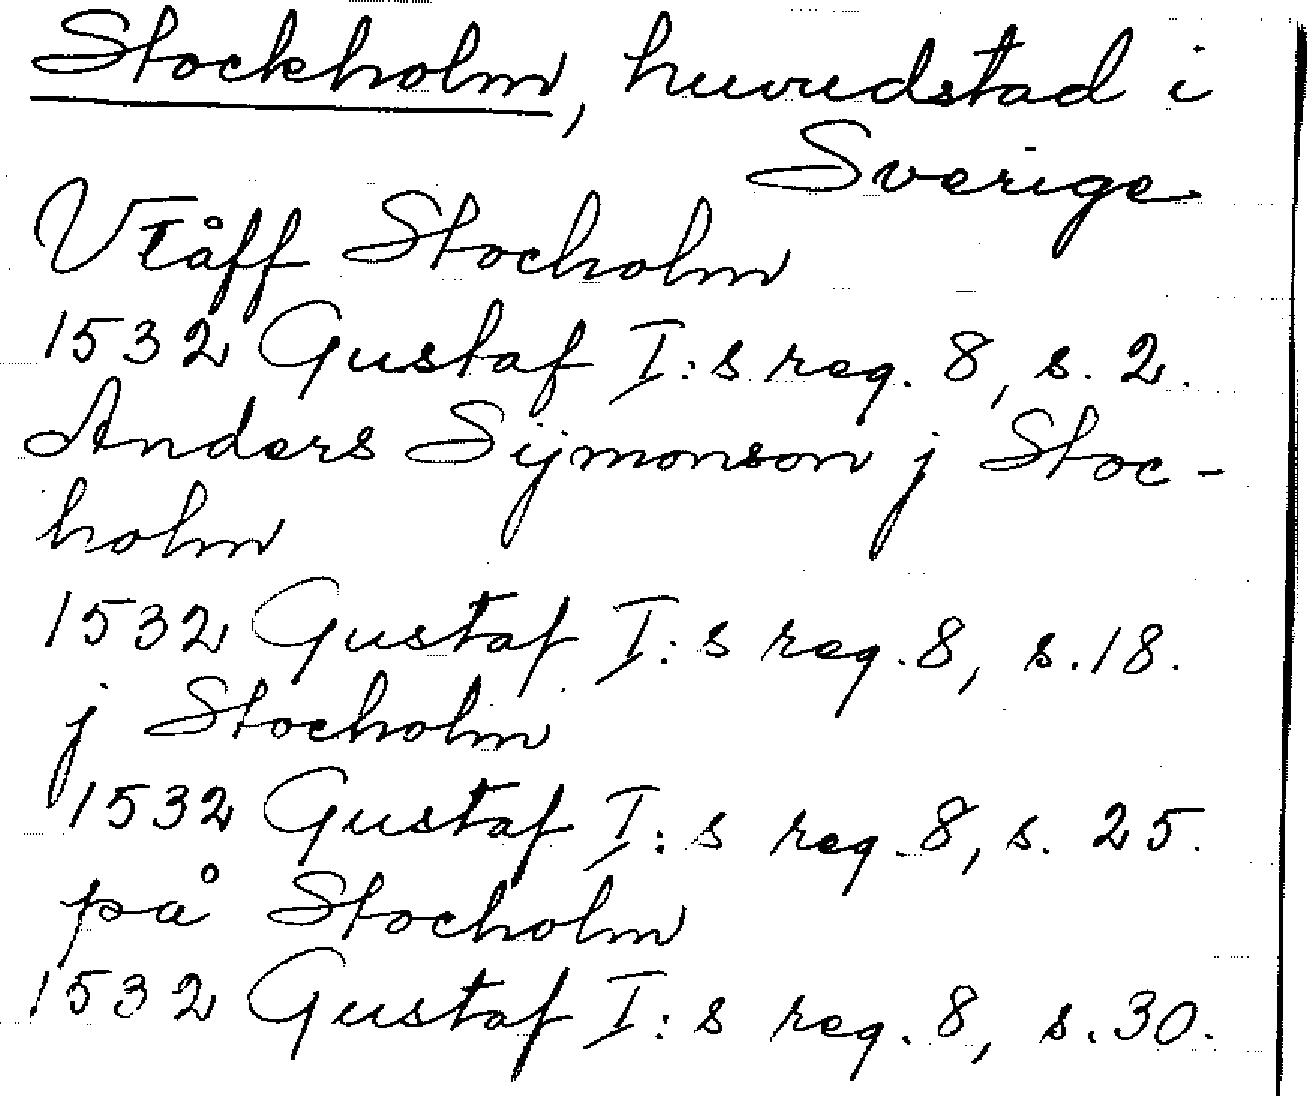 Stockholm, huvudstad i
Sverige
Vtåff Stocholm
1532 Gustaf I:s reg. 8, s. 2.
Anders Sijmonson j Stoc-
holm
1532 Gustaf I:s reg. 8, s. 18.
j Stocholm
1532 Gustaf I:s reg. 8, s. 25.
på Stocholm
1532 Gustaf I:s reg. 8, s. 30.